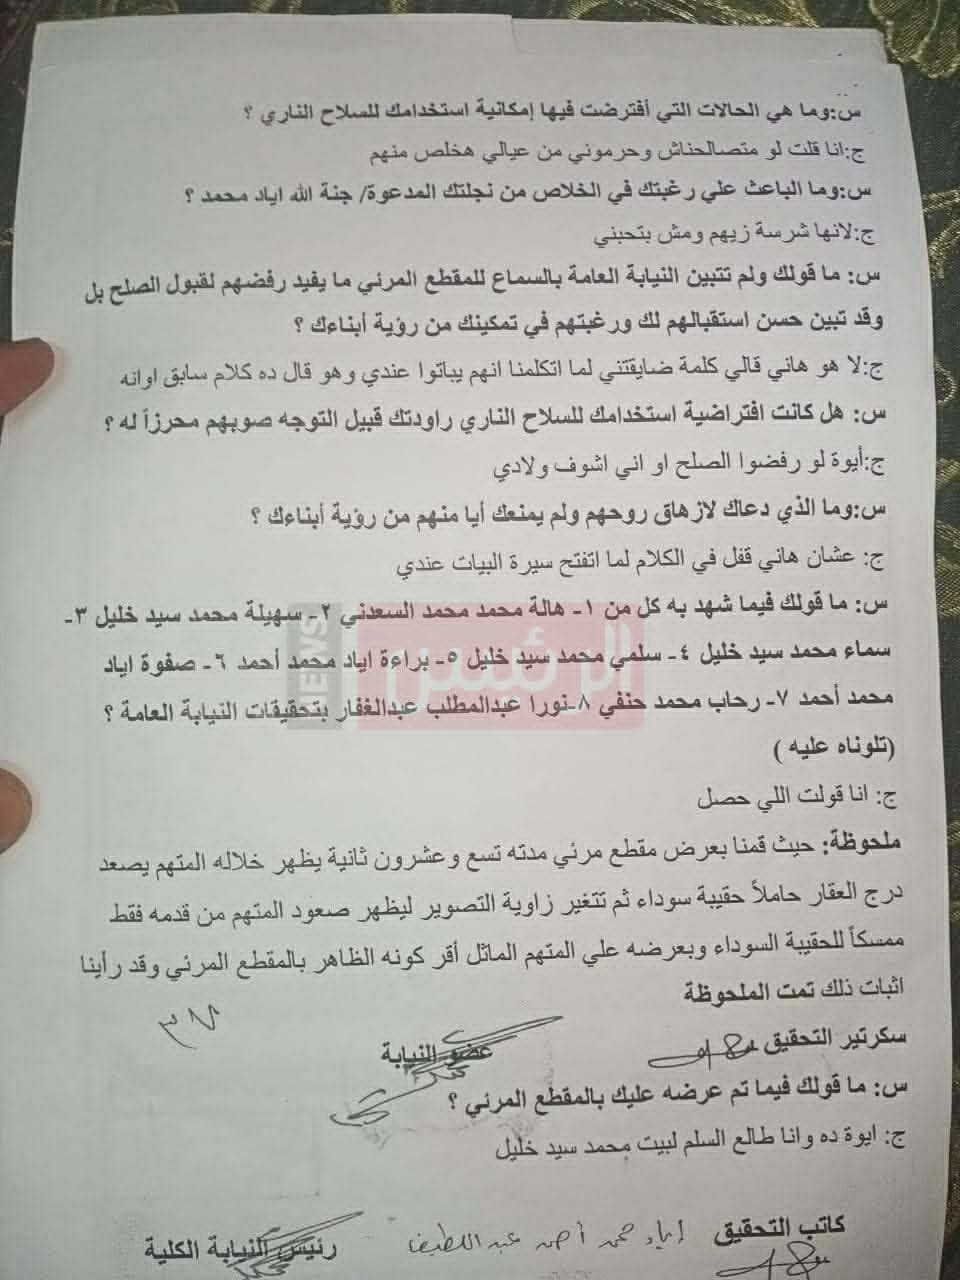 س:وما هي الحالات التي أفترضت فيها إمكانية استخدامك للسلاح الناري ؟
ج:انا قلت لو متصالحناش وحرموني من عيالي هخلص منهم
س:وما الباعث علي رغبتك في الخلاص من نجلتك المدعوة/ جنة الله اياد محمد ؟
ج:لانها شرسة زيهم ومش بتحبني
س: ما قولك ولم تتبين النيابة العامة بالسماع للمقطع المرئي ما يفيد رفضهم لقبول الصلح بل
وقد تبين حسن استقبالهم لك ورغبتهم في تمكينك من رؤية أبناءك ؟
ج:لا هو هاني قالي كلمة ضايقتني لما اتكلمنا انهم يباتوا عندي وهو قال ده كلام سابق اوانه
س: هل كانت افتراضية استخدامك للسلاح الناري راودتك قبيل التوجه صوبهم محرزاً له ؟
ج:أيوة لو رفضوا الصلح او اني اشوف ولادي
س:وما الذي دعاك لازهاق روحهم ولم يمنعك أيا منهم من رؤية أبناءك ؟
ج: عشان هاني قفل في الكلام لما اتفتح سيرة البيات عندي
س: ما قولك فيما شهد به كل من ١- هالة محمد محمد السعدني ٢- سهيلة محمد سيد خليل ٣-
سماء محمد سيد خليل ٤- سلمي محمد سيد خليل ٥- براءة اياد محمد أحمد ٦- صفوة اياد
محمد أحمد ٧- رحاب محمد حنفي ٨-نورا عبدالمطلب عبدالغفار بتحقيقات النيابة العامة ؟
(تلوناه عليه )
الرئيس NEWS
ج: انا قولت اللي حصل
ملحوظة: حيث قمنا بعرض مقطع مرئي مدته تسع وعشرون ثانية يظهر خلاله المتهم يصعد
درج العقار حاملاً حقيبة سوداء ثم تتغير زاوية التصوير ليظهر صعود المتهم من قدمه فقط
ممسكاً للحقيبة السوداء وبعرضه علي المتهم الماثل أقر كونه الظاهر بالمقطع المرئي وقد رأينا
اثبات ذلك تمت الملحوظة
سكرتير التحقيق عضو النيابة
س: ما قولك فيما تم عرضه عليك بالمقطع المرئي ؟
ج: ايوة ده وانا طالع السلم لبيت محمد سيد خليل
كاتب التحقيق إياد محمد أحمد عبد اللطيف رئيس النيابة الكلية